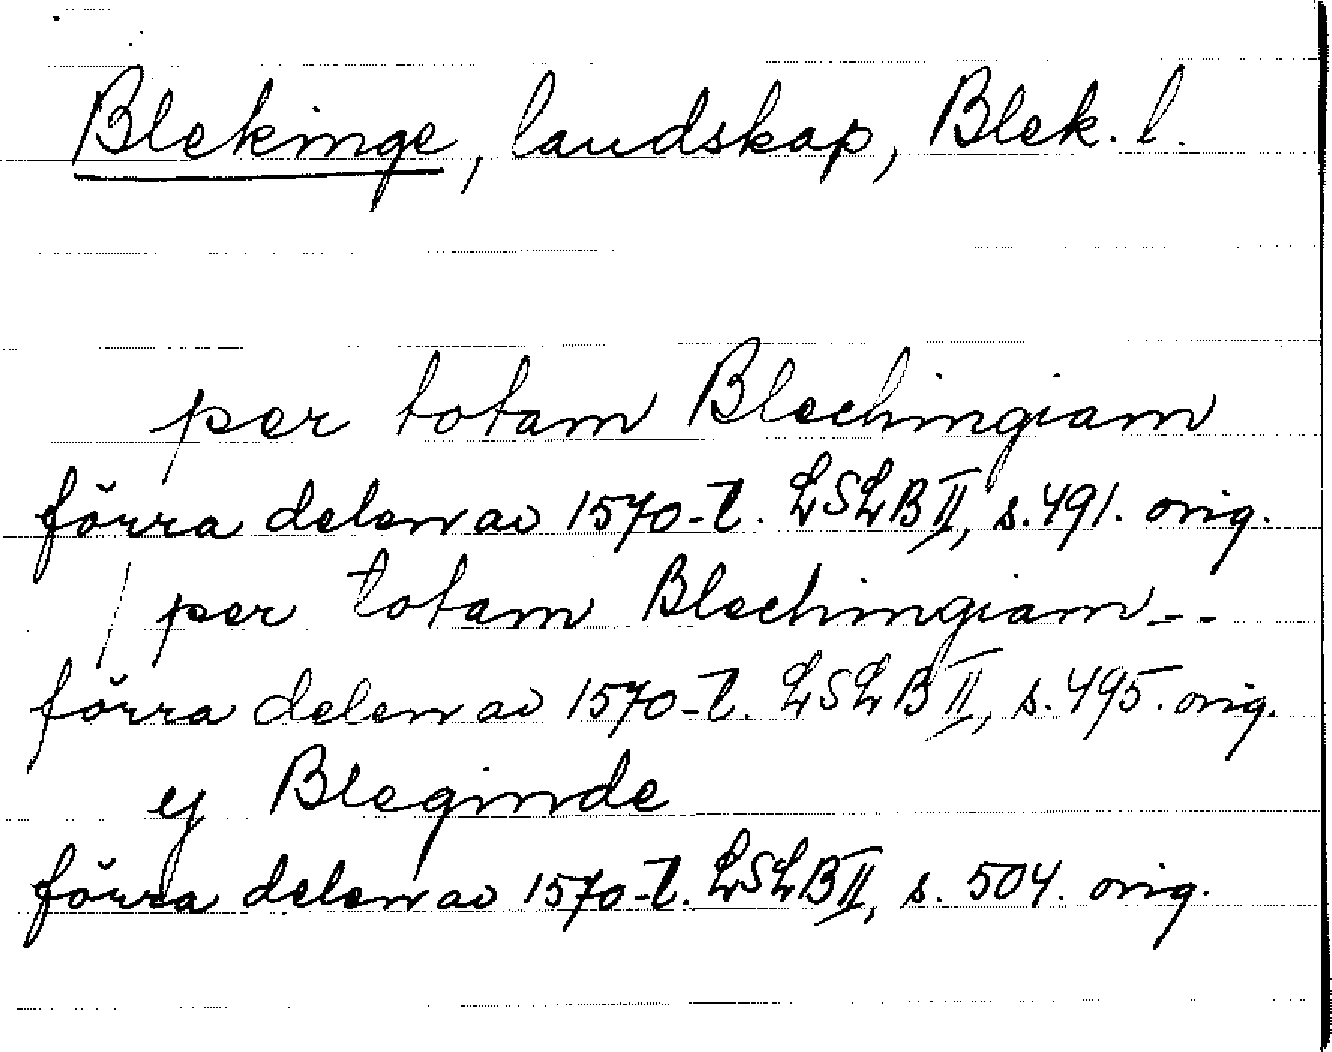 Blekinge, landskap, Blek. l.
per totam Blechingiam
förra delen av 1570-t. LSLB II, s. 491. orig.
/ per totam Blechingiam--
förra delen av 1570-t. LSLB II, s. 495. orig.
ej Bleginde
förra delen av 1570-t. LSLB II, s. 504. orig.